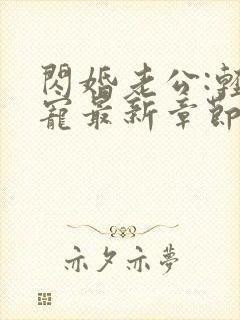 閃婚老公:輕
寵最新章節
亦夕亦夢